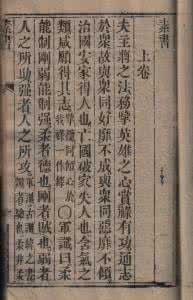 素書
上卷
夫主將之法務擥英雄之心賞祿有功通志
於衆故與衆同好靡不成與衆同惡靡不傾
治國安家得人也亡國破家失人也含氣之
類咸願得其志○軍讖曰柔
能制剛弱能制强柔者德也剛者賊也弱者
人之所助强者人之所攻